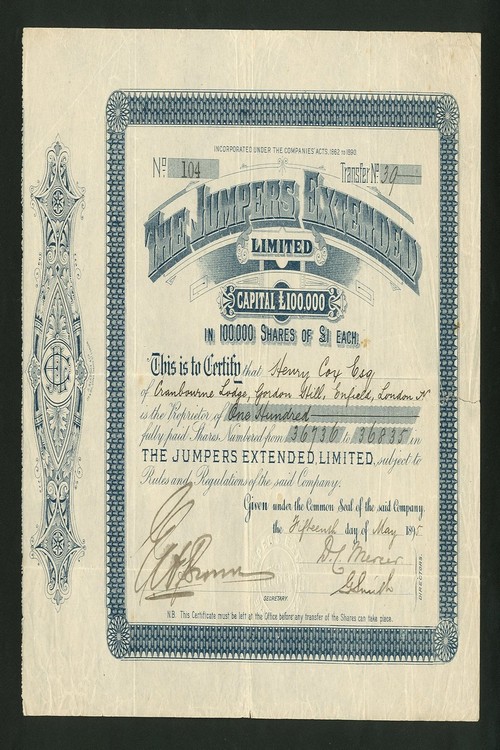 INCORPORATED UNDER THE COMPANIES ACTS, 1862 to 1890
No. 104 Transfer No. 39
THE JUMPERS EXTENDED
LIMITED
CAPITAL £100,000
IN 100,000 SHARES OF £1 EACH
This is to Certify that Henry Cox Esq
of Cranbourne Lodge, Gordon Hill, Enfield, London N
is the Proprietor of One Hundred
fully paid Shares Numbered from 36736 to 36835 in
THE JUMPERS EXTENDED LIMITED, subject to
Rules and Regulations of the said Company.
Given under the Common Seal of the said Company
the Fifteenth day of May 1895
D. Mercer
G Smith
DIRECTORS.
SECRETARY.
N.B. This Certificate must be left at the Office before any transfer of the Shares can take place.